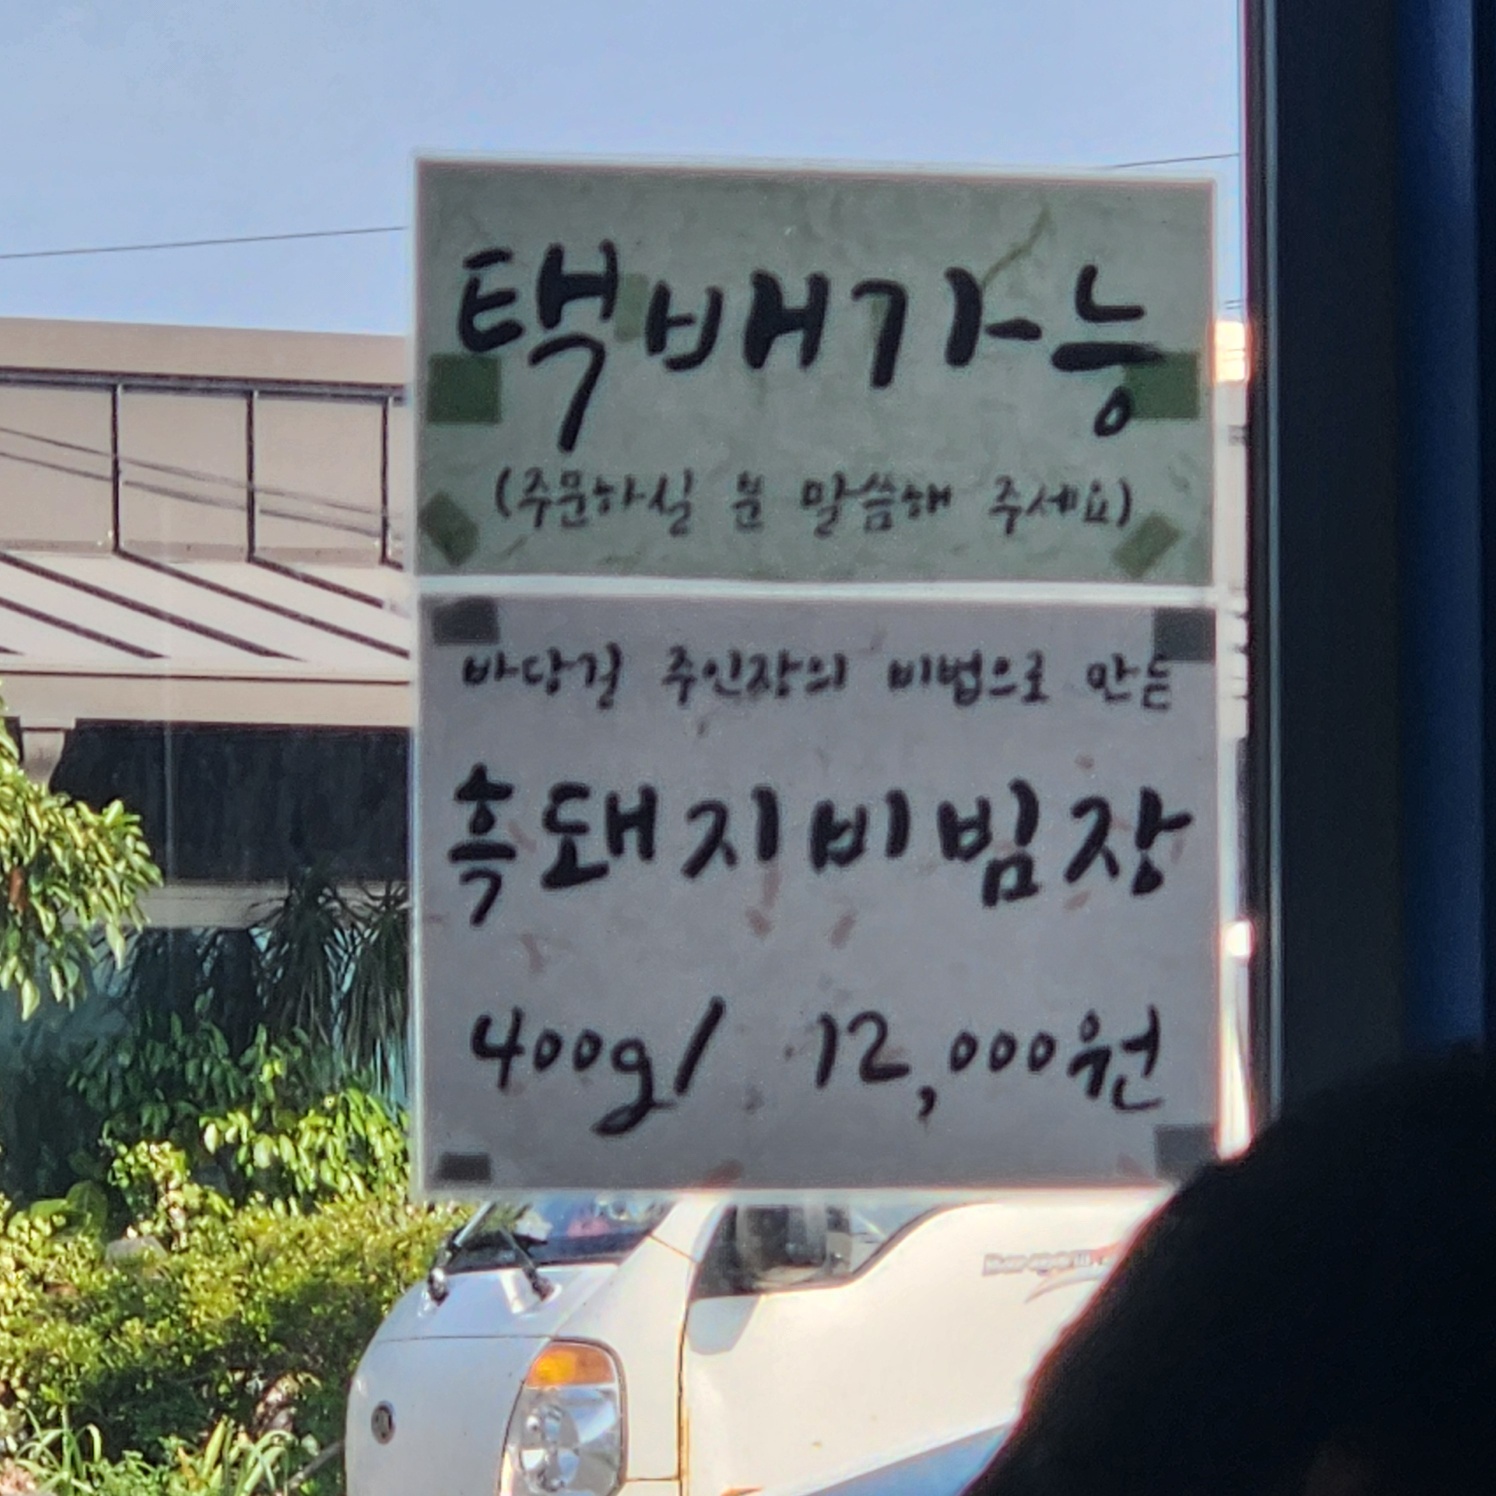 택배가능
(주문하실 분 말씀해 주세요)
바당길 주인장의 비법으로 만든
흑돼지비빔장
400g/ 12,000원